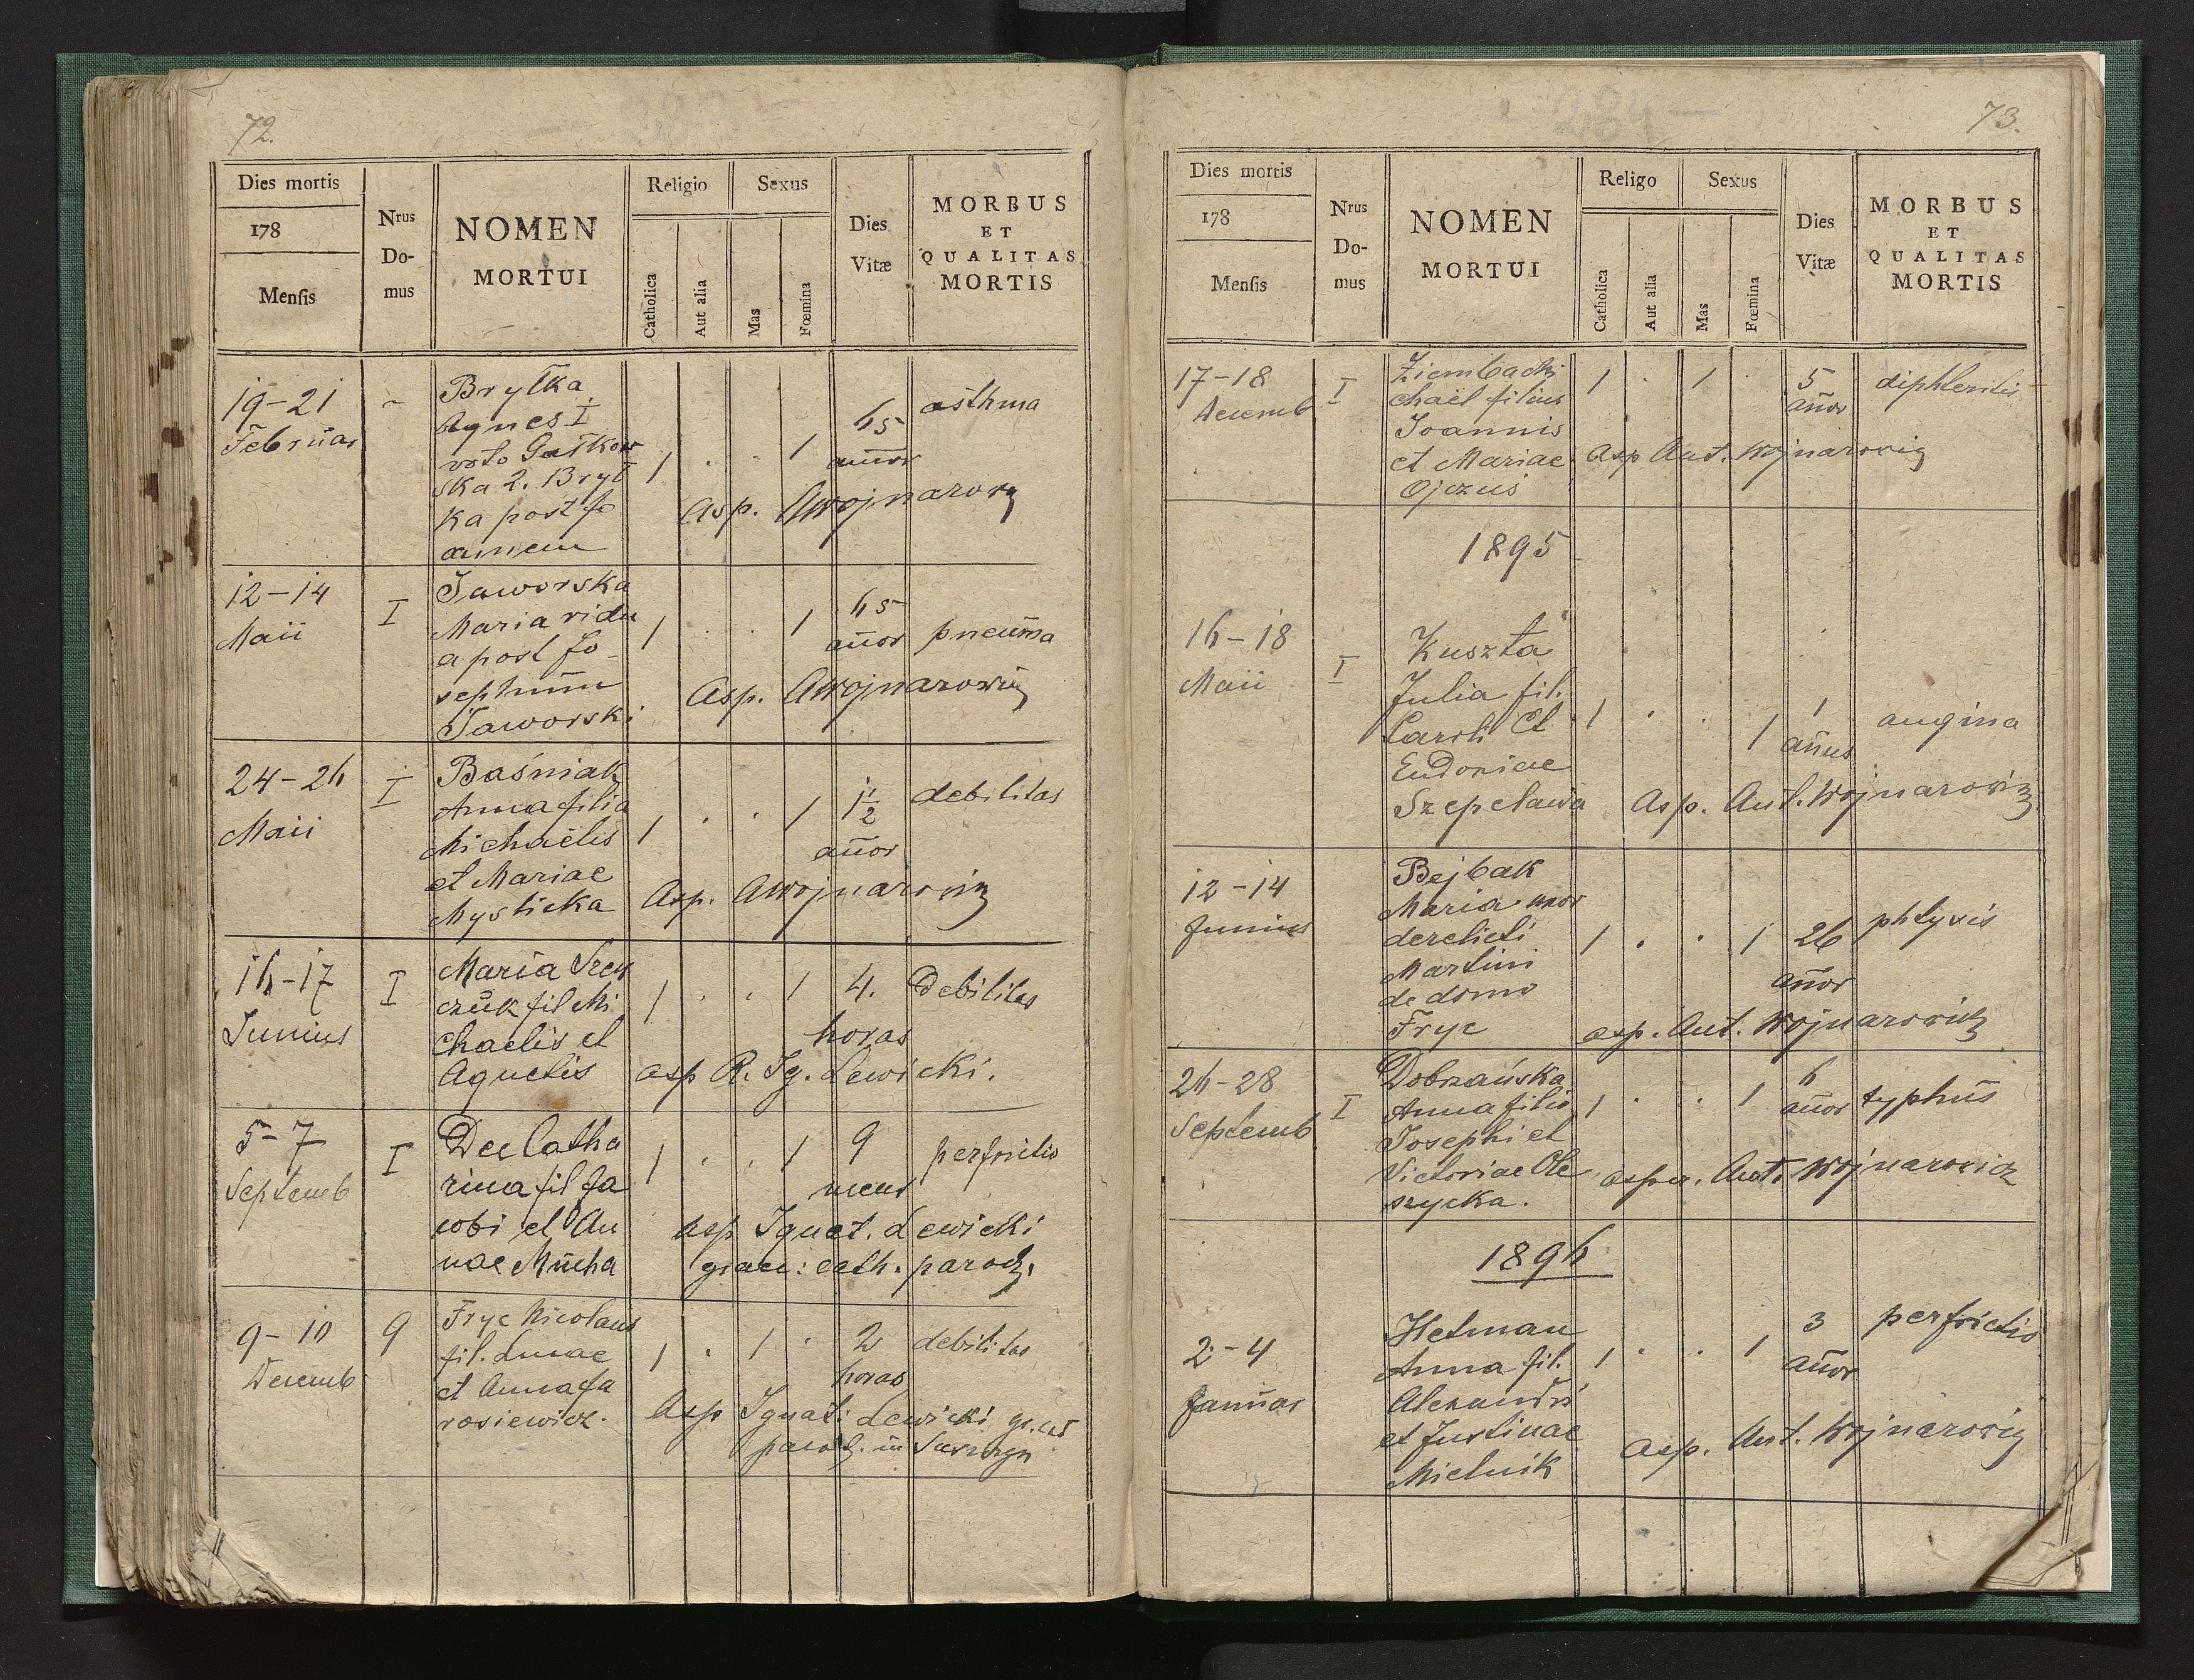 72.
Dies mortis
178
Mensis
Nrus
Do-
mus
NOMEN
MORTUI
Religio
Catholica
Aut alia
Sexus
Mas
Fœmina
Dies
Vitæ
MORBUS
ET
QUALITAS
MORTIS
19-21
Februar
Brytka
Agnes I
voto Gutkow
ska 2. Bryt
ka post Jo
annem
1 . . 1
65
annor
asthma
Asp. AWojnarowicz
12-14
Maii
I
Jaworska
Maria vidu
a post Jo-
sephum
Jaworski
1 . . 1
65
annor
pneuma
Asp. AWojnarowicz
24-26
Maii
I
Baśniak
Anna filia
Michaëlis
et Mariae
Mysticka
1 . . 1
1 1/2
annor
debilitas
Asp. AWojnarowicz
16-17
Junius
I
Maria Szew
czuk fil Mi
chaelis et
Agnetis
1 . . 1
4.
horas
Debilitas
asp R. Ig. Lewicki.
5-7
Septemb
I
Dec Catha
rina fil Ja
cobi et An
nae Mucha
1 . . 1
9
mens
perfrictio
asp Ignat. Lewicki
graec: cath. paroch.
9-10
Decemb
9
Fryc Nicolaus
fil. Lucae
et Anna Ja
rosiewicz.
1 . 1 .
2
horas
debilitas
Asp Ignati Lewicki gr. cat
paroch. in
73.
Dies mortis
178
Mensis
Nrus
Do-
mus
NOMEN
MORTUI
Religo
Catholica
Aut alia
Sexus
Mas
Fœmina
Dies
Vitæ
MORBUS
ET
QUALITAS
MORTIS
17-18
Decemb
I
Ziemba Mi
chaël filius
Joannis
et Mariae
Ojczuś
1 . 1 .
5
annor
diphteritis
Asp Ant. Wojnarowicz
1895
16-18
Maii
I
Kuszta
Julia fil.
Caroli et
Eudoxiae
Szepetawa
1 . . 1
1
annus
angina
Asp. Ant. Wojnarowicz
12-14
Junius
Bejbak
Maria uxor
derelicti
Martini
de domo
Fryc
1 . . 1
26
annor
phtysis
asp. Ant. Wojnarowicz
26-28
Septemb
I
Dobrzańska
Anna filia
Josephi et
Victoriae Ole
szycka.
1 . . 1
6
annor
typhus
asper. Ant. Wojnarowicz
1896
2-4
Januar
Hetman
Anna fil.
Alexandri
et Justinae
Mielnik
1 . . 1
3
annor
perfrictio
Asp. Ant. Wojnarowicz